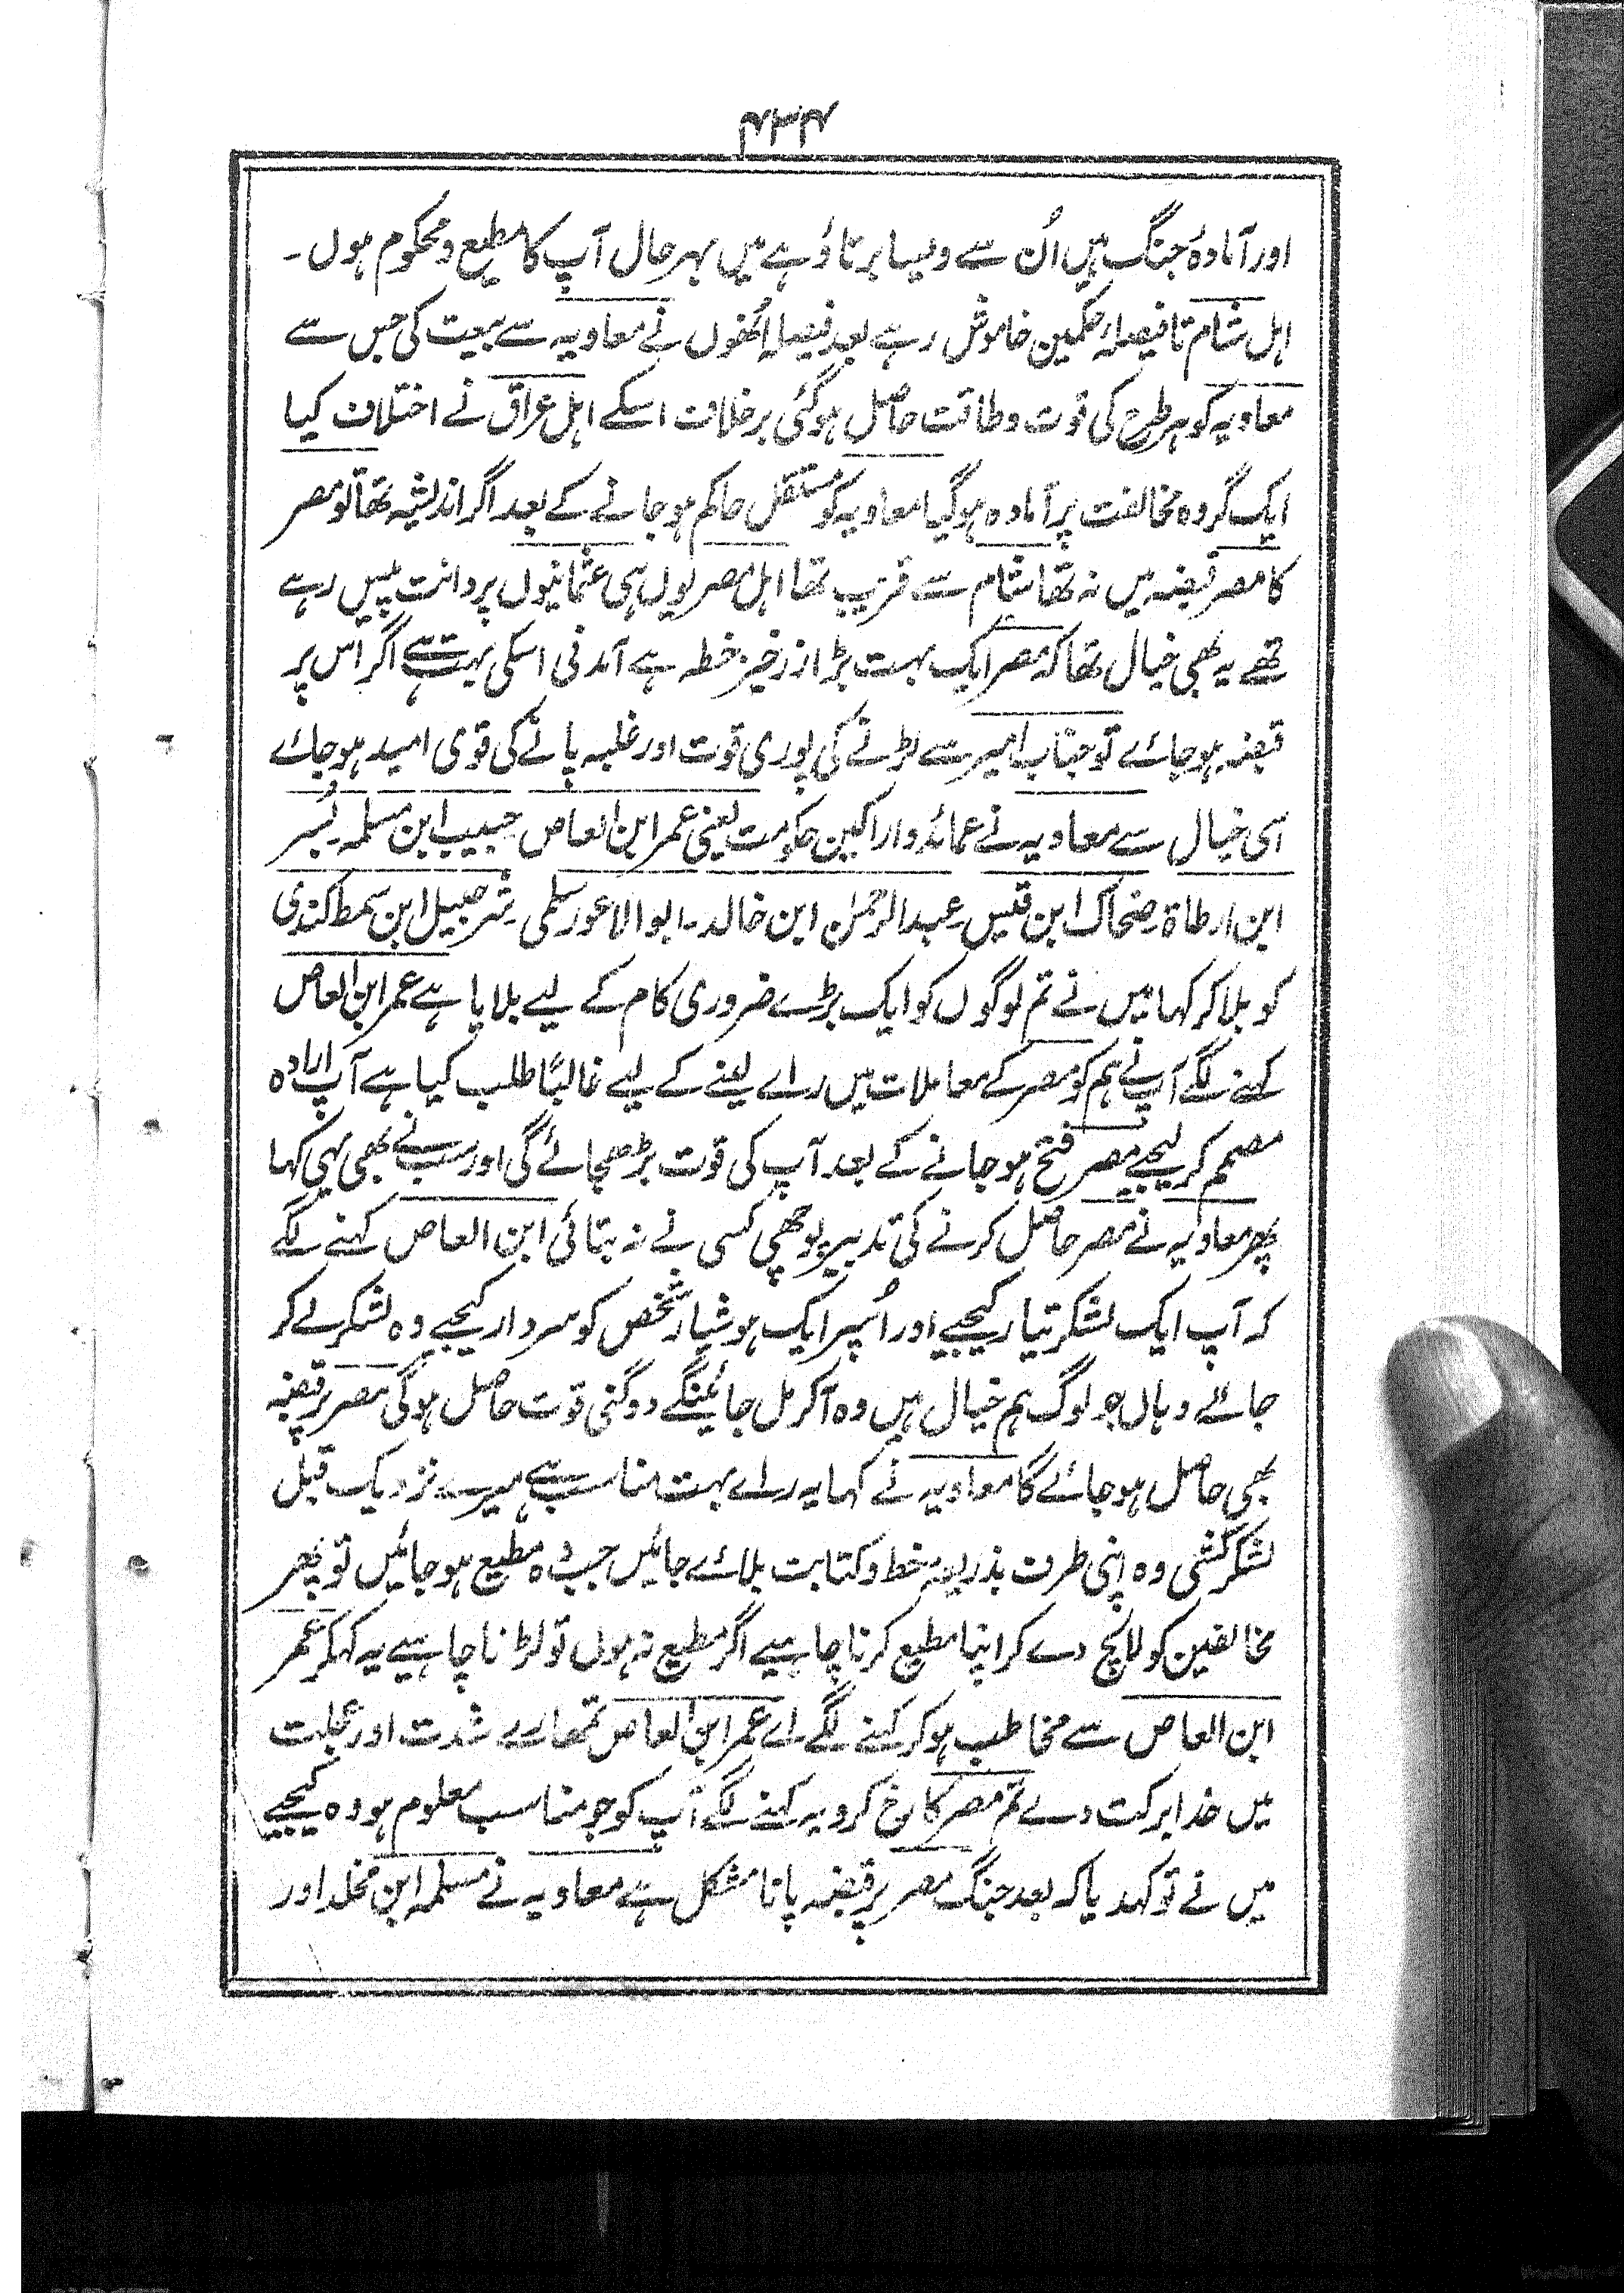 ۴۳۴
اور آمادۂ جنگ ہیں اُن سے ویسا برتاؤ ہے میں بہرحال آپ کا مطیع و محکوم ہوں۔
اہل شام تا فیصلۂ حکمین خاموش رہے بعد فیصلہ اُنھوں نے معاویہ سے بیعت کی جس سے
معاویہ کو ہر طرح کی قوت و طاقت حاصل ہوگئی برخلاف اسکے اہل عراق نے اختلاف کیا
ایک گروہ مخالفت پر آمادہ ہوگیا معاویہ کو مستقل حاکم ہو جانے کے بعد اگر اندیشہ تھا تو مصر
کا مصر قبضہ میں نہ تھا شام سے قریب تھا اہل مصر یوں ہی عثمانیوں پر دانت پیس رہے
تھے یہ بھی خیال تھا کہ مصر ایک بہت بڑا زرخیز خطہ ہے آمدنی اسکی بہت ہے اگر اس پر
قبضہ ہو جائے تو جناب امیر سے لڑنے کی پوری قوت اور غلبہ پانے کی قوی امید ہو جائے
اسی خیال سے معاویہ نے عمائد و اراکین حکومت یعنی عمر ابن العاص حبیب ابن مسلمہ۔ بُسر
ابن ارطاۃ۔ ضحاک ابن قیس۔ عبدالرحمٰن ابن خالد۔ ابوالاعور سلمی۔ شرحبیل ابن سمط کندی
کو بلا کر کہا میں نے تم لوگوں کو ایک بڑے ضروری کام کے لیے بلایا ہے عمر ابن العاص
کہنے لگے آپ نے ہم کو مصر کے معاملات میں راے لینے کے لیے غالباً طلب کیا ہے آپ ارادہ
مصمم کر لیجیے مصر فتح ہو جانے کے بعد آپ کی قوت بڑھجائے گی اور سب نے بھی یہی کہا
پھر معاویہ نے مصر حاصل کرنے کی تدبیر پوچھی کسی نے نہ بتائی ابن العاص کہنے لگے
کہ آپ ایک لشکر تیار کیجیے اور اُسپر ایک ہوشیار شخص کو سردار کیجیے وہ لشکر لے کر
جائے وہاں جو لوگ ہم خیال ہیں وہ آکر مل جائینگے دوگنی قوت حاصل ہوگی مصر پر قبضہ
بھی حاصل ہو جائے گا معاویہ نے کہا یہ راے بہت مناسب ہے میرے نزدیک قبل
لشکر کشی وہ اپنی طرف بذریعہ خط و کتابت بلائے جائیں جب وہ مطیع ہو جائیں تو پھر
مخالفین کو لالچ دے کر اپنا مطیع کرنا چاہیے اگر مطیع نہ ہوں تو لڑانا چاہیے یہ کہکر عمر
ابن العاص سے مخاطب ہو کر کہنے لگے اے عمر ابن العاص تمھارے شدت اور عجلت
میں خدا برکت دے تم مصر کا رخ کرو یہ کہنے لگے آپ کو جو مناسب معلوم ہو وہ کیجیے
میں نے تو کہدیا کہ بعد جنگ مصر پر قبضہ پانا مشکل ہے معاویہ نے مسلمہ ابن مخلد اور